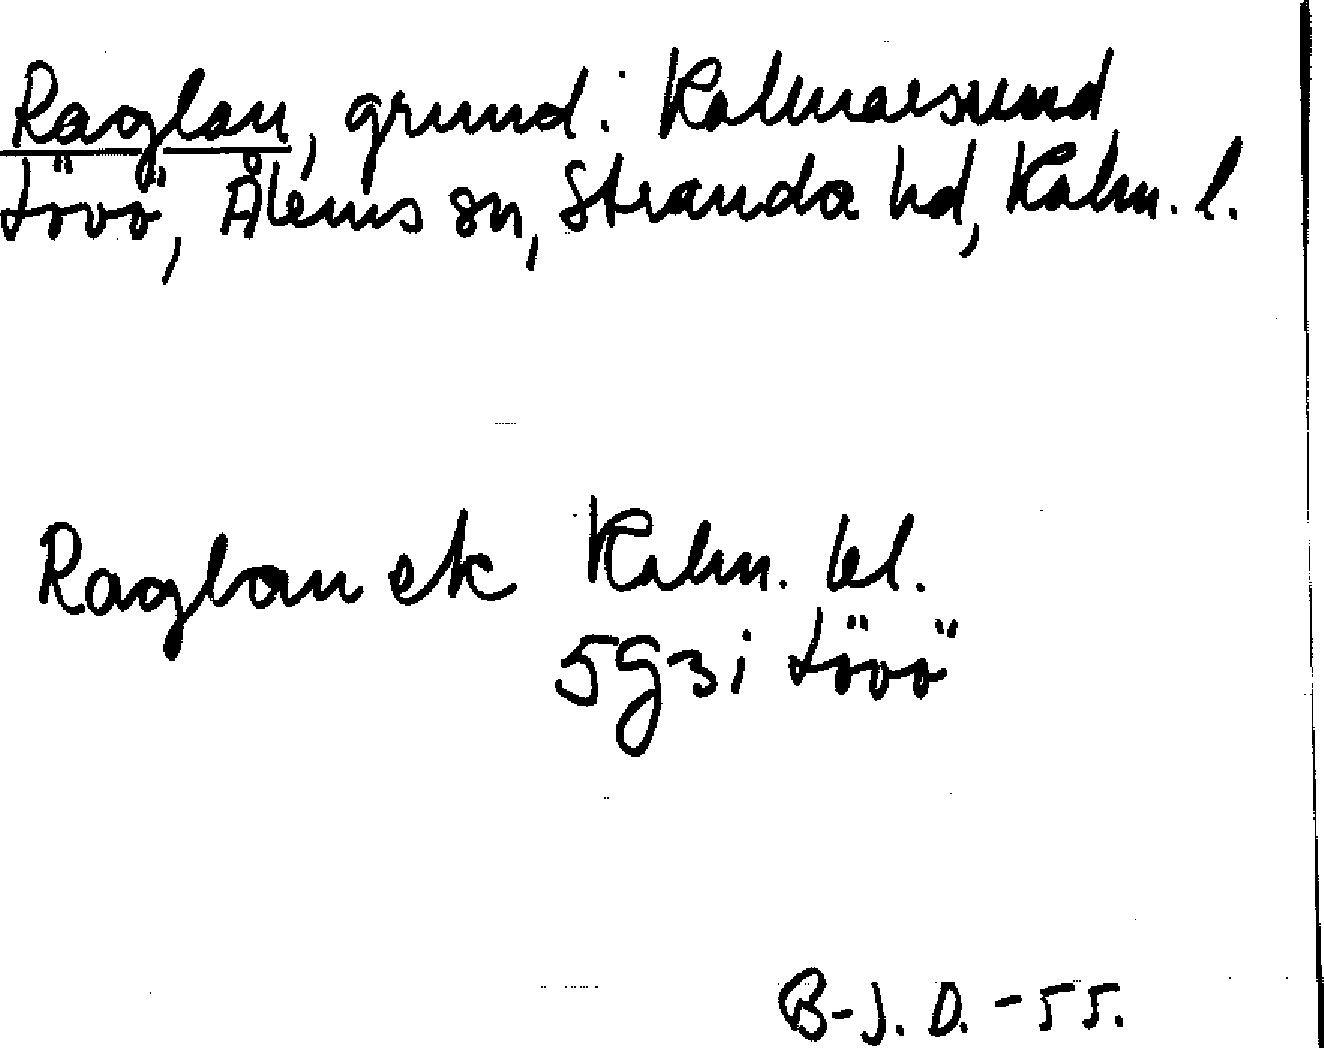 Raglan, grund i Kalmarsund
Lövö, Ålems sn, Stranda hd, Kalm. l.
Raglan ek Kalm. bl.
5g3i Lövö
B-J. D. -55.